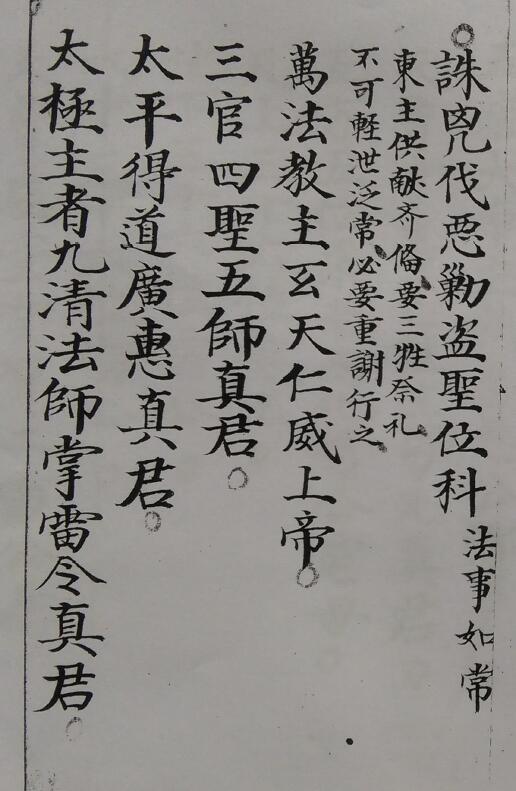 誅兇伐惡勦盗聖位科 法事如常
東主供献齐俻要三牲祭礼
不可輕泄泛常必要重謝行之
萬法教主玄天仁威上帝
三官四聖五師真君
太平得道廣惠真君
太極主者九清法師掌雷令真君